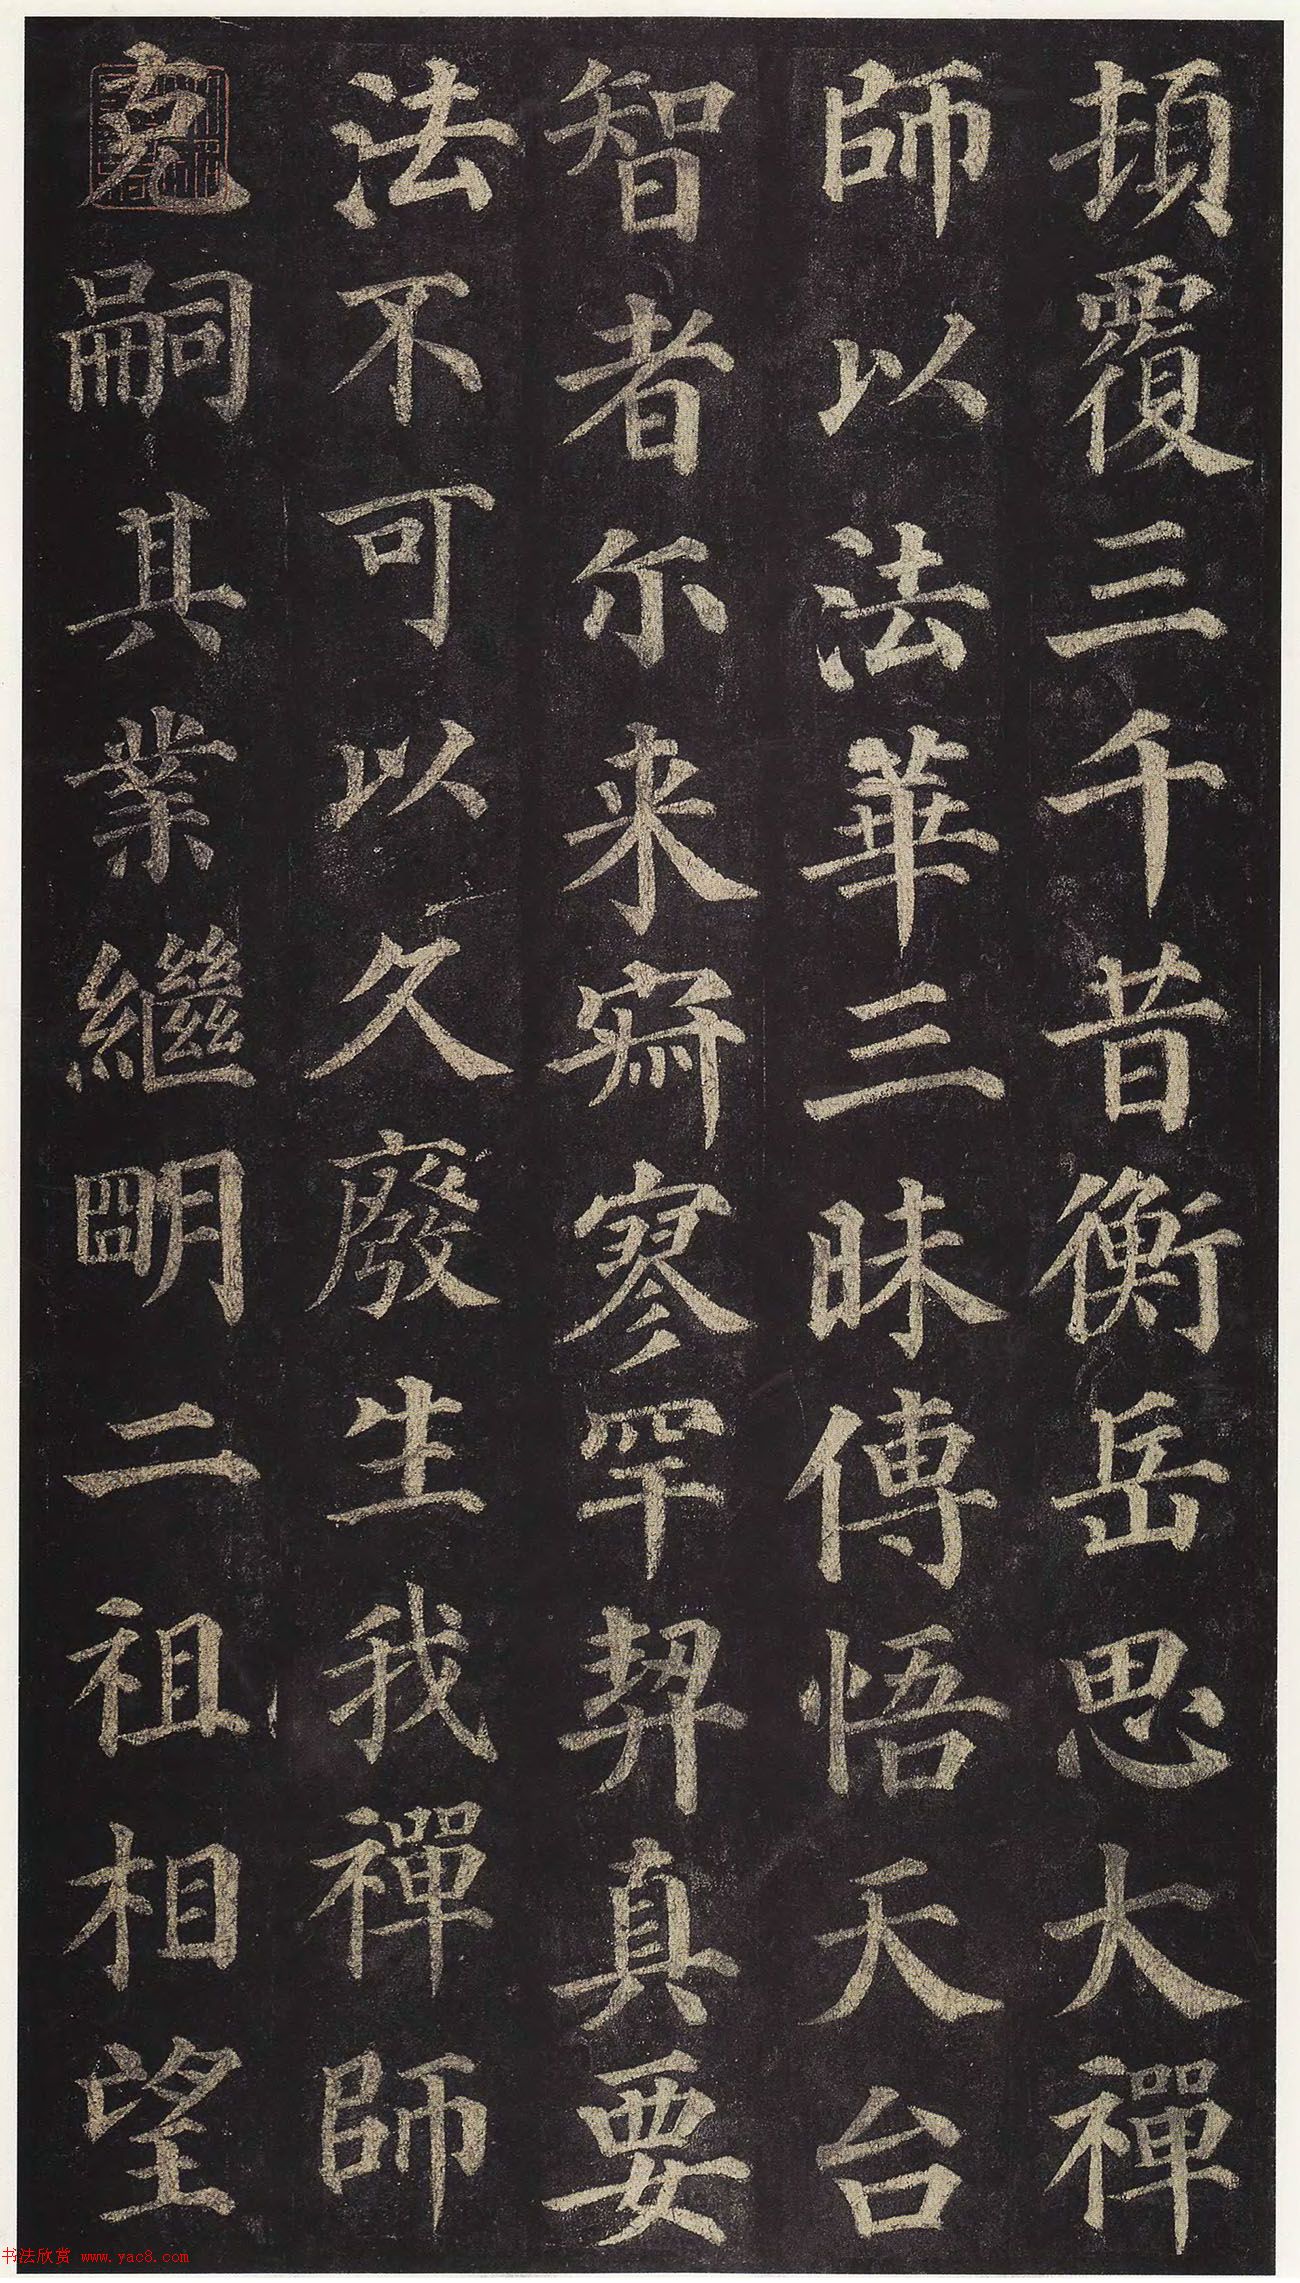 頃覆三千昔衡岳思大禪
師以法華三昧傳悟天台
智者尓来寂寥罕契真要
法不可以久廢生我禪師
克嗣其業繼明二祖相望
书法欣赏 www.yac8.com